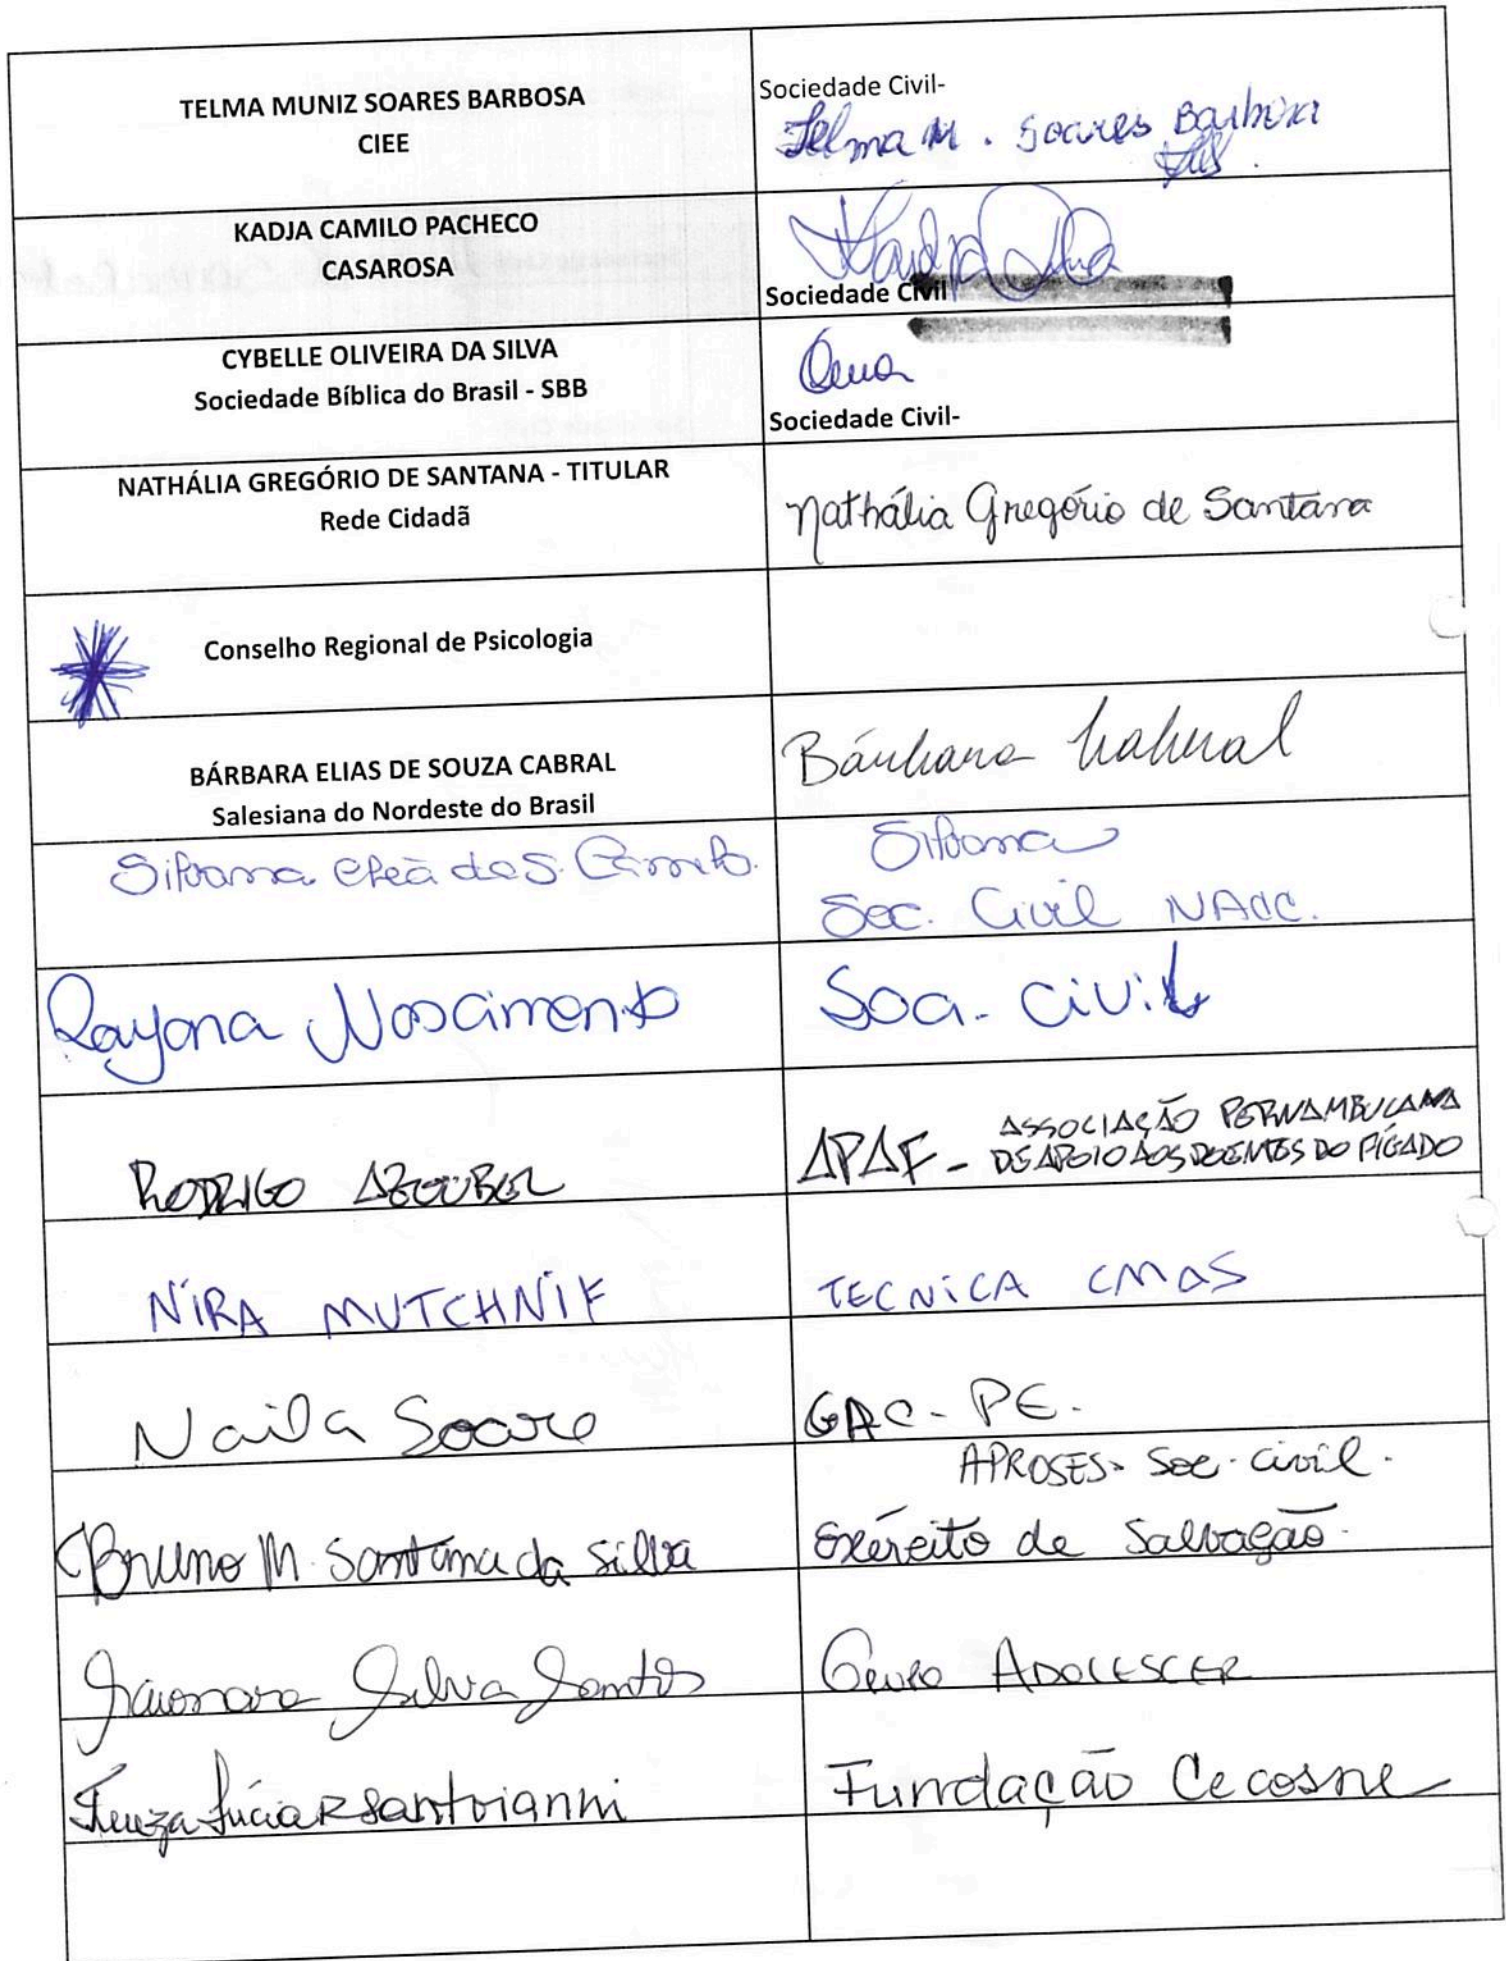 TELMA MUNIZ SOARES BARBOSA
CIEE
Sociedade Civil-
Telma M. Soares Barbosa
KADJA CAMILO PACHECO
CASAROSA
Sociedade Civil
CYBELLE OLIVEIRA DA SILVA
Sociedade Bíblica do Brasil - SBB
Sociedade Civil-
NATHÁLIA GREGÓRIO DE SANTANA - TITULAR
Rede Cidadã
Nathália Gregório de Santana
Conselho Regional de Psicologia
BÁRBARA ELIAS DE SOUZA CABRAL
Salesiana do Nordeste do Brasil
Bárbara Cabral
Silvana dos S.
Silvana
Soc. Civil NACC.
Rayana Nascimento
Soci. Civil
RODRIGO AZOUBEL
APAF - ASSOCIAÇÃO PERNAMBUCANA
DE APOIO AOS DOENTES DO FÍGADO
NIRA MUTCHNIK
TECNICA CMAS
Naila Soare
GAC - PE.
APROSES - Soc. civil.
Bruno M. Santana da Silva
Exército de Salvação
Silva Santos
Grupo ADOLESCER
Lúcia R Santoianni
Fundação Cecosne